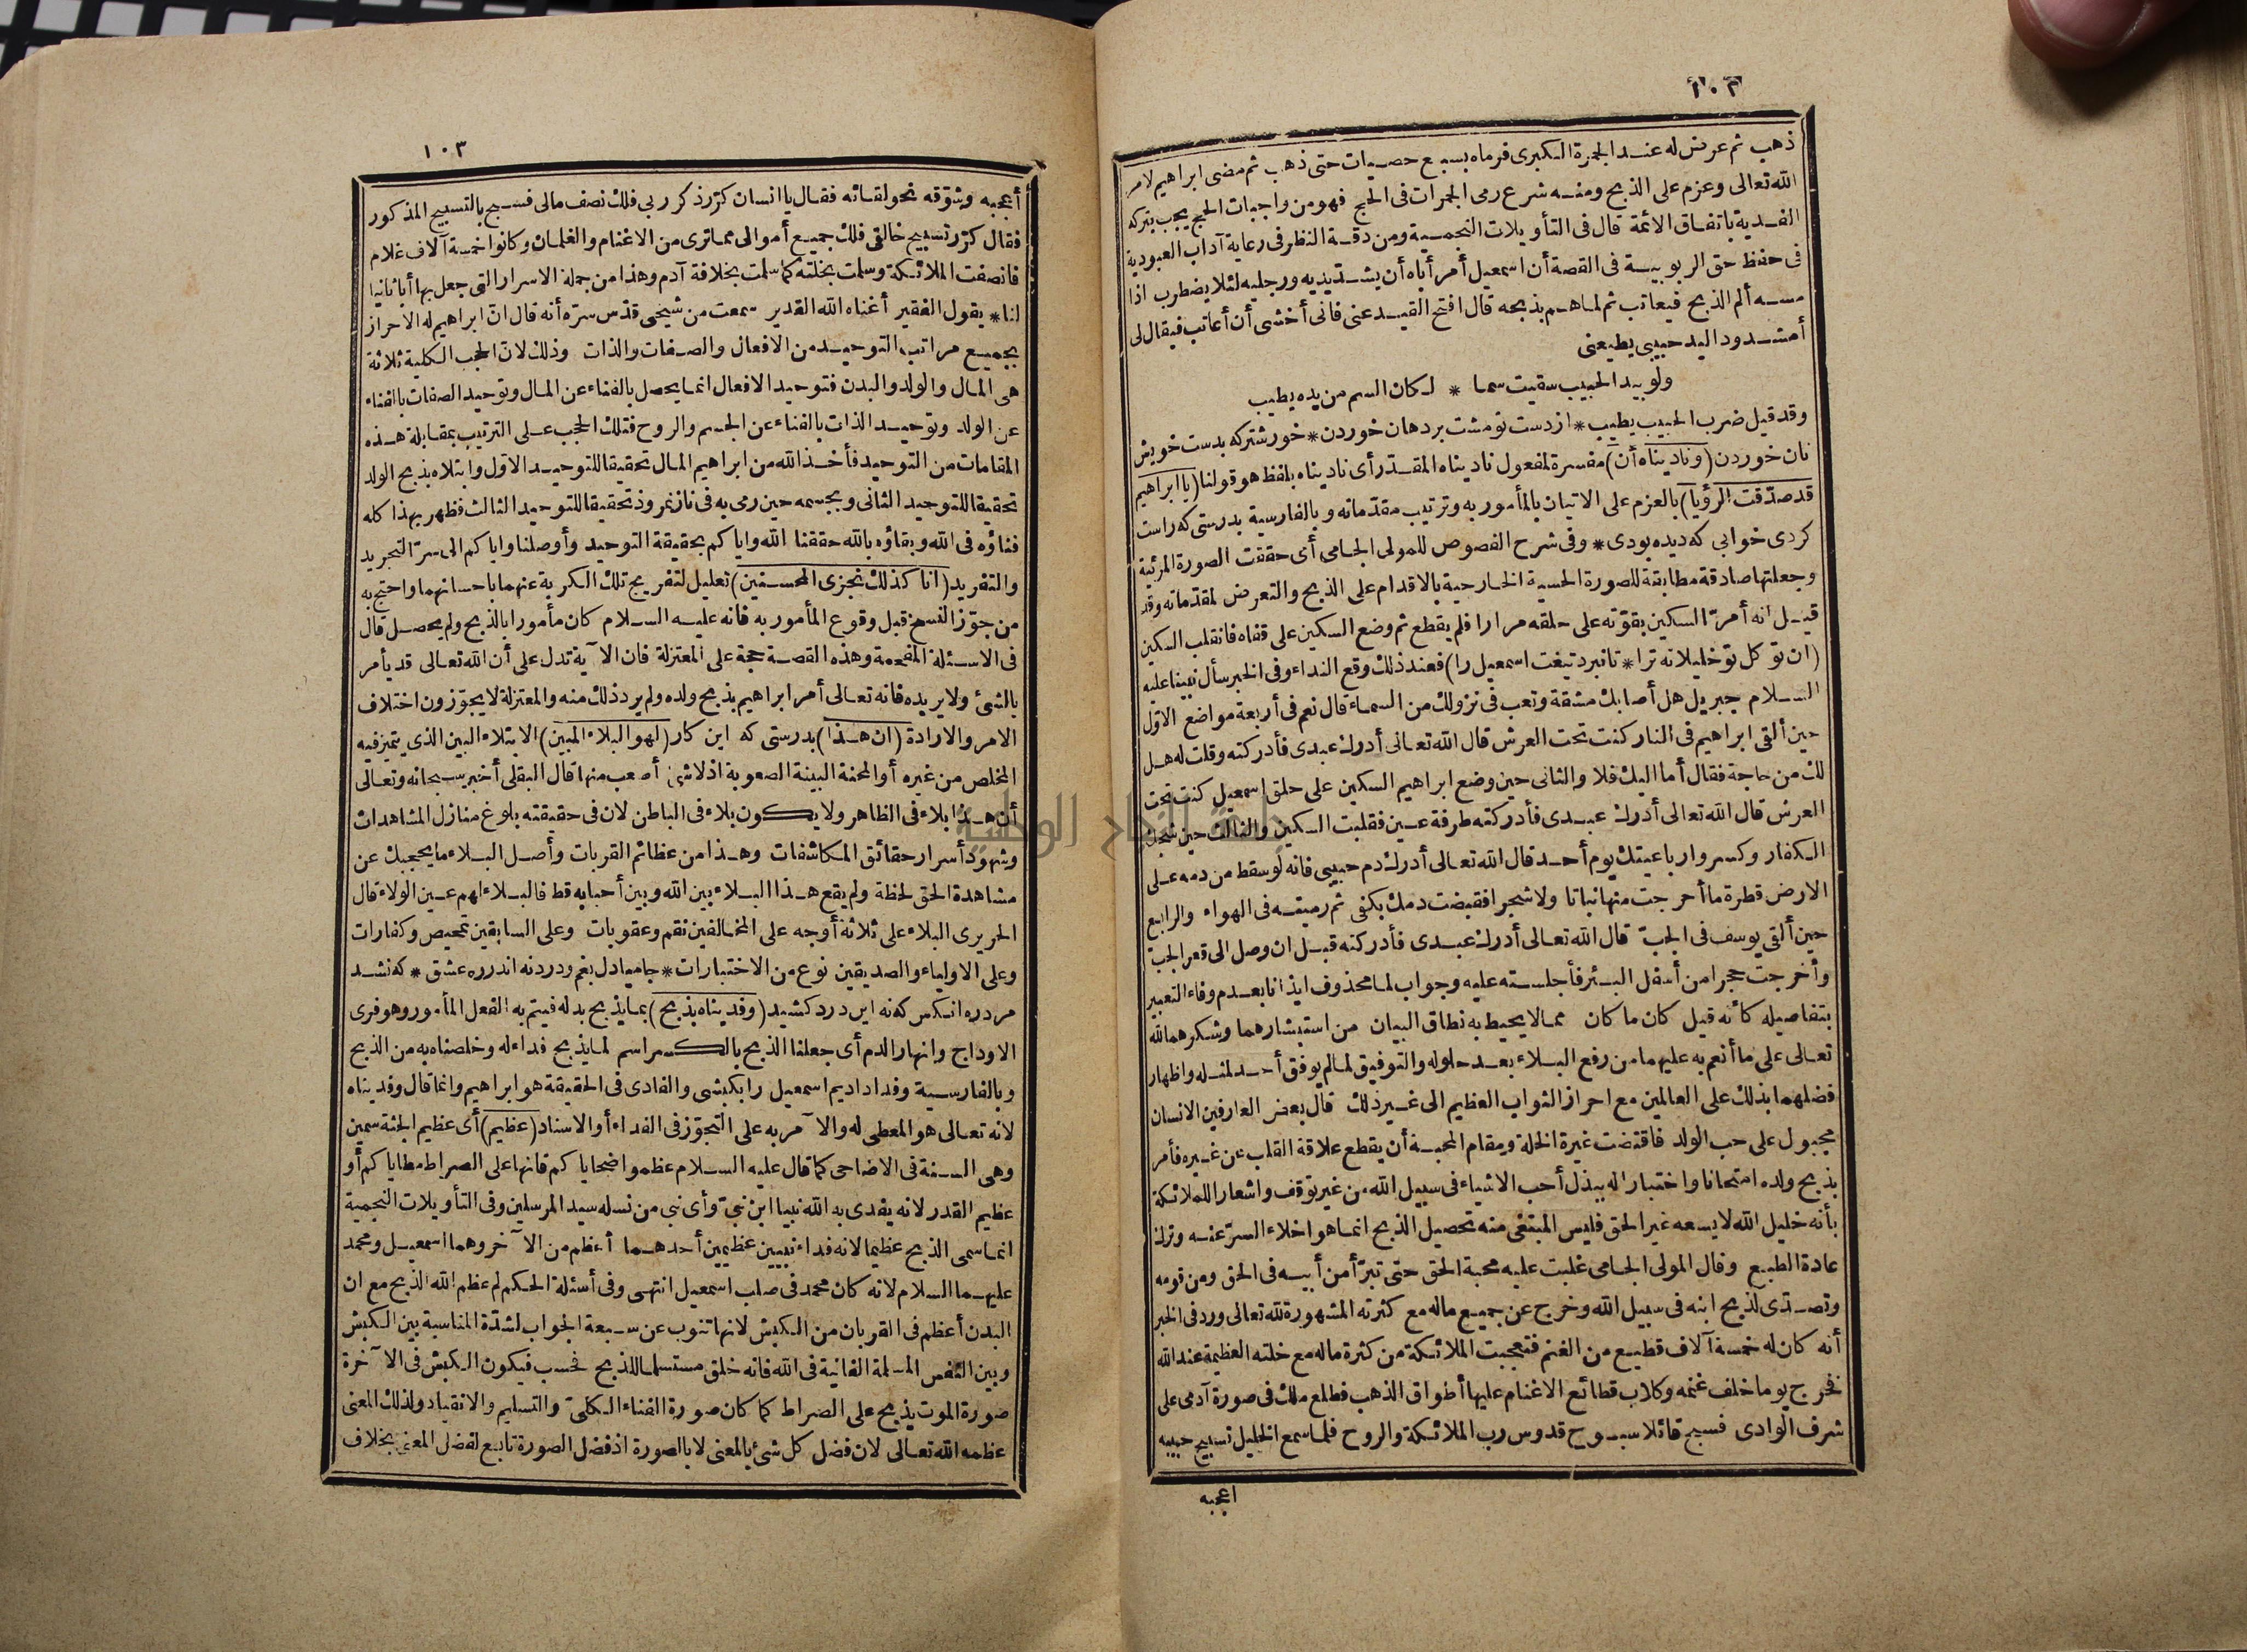 ١٠٢
ذهب ثم عرض له عند الجمرة الكبرى فرماه بسبع حصيات حتى ذهب ثم مضى ابراهيم لامر
الله تعالى وعزم على الذبح ومنه شرع رمى الجمرات فى الحج فهو من واجبات الحج يجب بتركه
الفدية باتفاق الائمة قال فى التأويلات النجمية ومن دقة النظر فى رعاية آداب العبودية
فى حفظ حق الربوبية فى القصة أن اسمعيل أمر أباه أن يشد يديه ورجليه لئلا يضطرب اذا
مسه ألم الذبح فيعاتب ثم لما هم بذبحه قال افتح القيد عنى فانى أخشى أن أعاتب فيقال لى
أمشدود اليد حبيبى يطيعنى
ولو بيد الحبيب سقيت سما * لكان السم من يده يطيب
وقد قيل ضرب الحبيب يطيب * از دست تو مشت بر دهان خوردن * خوشتر كه بدست خويش
نان خوردن (وناديناه أن) مفسرة لمفعول ناديناه المقدّر أى ناديناه بلفظ هو قولنا (يا ابراهيم
قد صدّقت الرؤيا) بالعزم على الاتيان بالمأمور به وترتيب مقدّماته وبالفارسية بدرستى كه راست
كردى خوابى كه ديده بودى * وفى شرح الفصوص للمولى الجامى أى حققت الصورة المرئية
وجعلتها صادقة مطابقة للصورة الحسية الخارجية بالاقدام على الذبح والتعرض لمقدّماته وقد
قيل انه أمرّ السكين بقوّته على حلقه مرارا فلم يقطع ثم وضع السكين على قفاه فانقلب السكين
(ان تو كل تو خليلانه ترا * تا نبرد تيغت اسمعيل را) فعند ذلك وقع النداء وفى الخبر سأل نبينا عليه
السلام جبريل هل أصابك مشقة وتعب فى نزولك من السماء قال نعم فى أربعة مواضع الاوّل
حين ألقى ابراهيم فى النار كنت تحت العرش قال الله تعالى أدرك عبدى فأدركته وقلت له هل
لك من حاجة فقال أما اليك فلا والثانى حين وضع ابراهيم السكين على حلق اسمعيل كنت تحت
العرش قال الله تعالى أدرك عبدى فأدركته طرفة عين فقلبت السكين والثالث حين شجك
الكفار وكسروا رباعيتك يوم أحد قال الله تعالى أدرك دم حبيبى فانه لو سقط من دمه على
الارض قطرة ما أخرجت منها نباتا ولا شجرا فقبضت دمك بكفى ثم رميته فى الهواء والرابع
حين ألقى يوسف فى الجبّ قال الله تعالى أدرك عبدى فأدركته قبل ان وصل الى قعر الجبّ
وأخرجت حجرا من أسفل البئر فأجلسته عليه وجواب لما محذوف ايذانا بعدم وفاء التعبير
بتفاصيله كأنه قيل كان ما كان مما لا يحيط به نطاق البيان من استبشارهما وشكرهما لله
تعالى على ما أنعم به عليهما من رفع البلاء بعد حلوله والتوفيق لما لم يوفق أحد لمثله واظهار
فضلهما بذلك على العالمين مع احراز الثواب العظيم الى غير ذلك قال بعض العارفين الانسان
مجبول على حب الولد فاقتضت غيرة الخلة ومقام المحبة أن يقطع علاقة القلب عن غيره فأمر
بذبح ولده امتحانا واختبارا له ببذل أحب الاشياء فى سبيل الله من غير توقف واشعارا للملائكة
بأنه خليل الله لا يسعه غير الحق فليس المبتغى منه تحصيل الذبح انما هو اخلاء السرّ عنه وترك
عادة الطبع وقال المولى الجامى غلبت عليه محبة الحق حتى تبرّأ من أبيه فى الحق ومن قومه
وتصدّى لذبح ابنه فى سبيل الله وخرج عن جميع ماله مع كثرته المشهورة لله تعالى ورد فى الخبر
أنه كان له خمسة آلاف قطيع من الغنم فتعجبت الملائكة من كثرة ماله مع خلته العظيمة عند الله
فخرج يوما خلف غنمه وكلاب قطائع الاغنام عليها أطواق الذهب فطلع ملك فى صورة آدمى على
شرف الوادى فسبح قائلا سبوح قدوس رب الملائكة والروح فلما سمع الخليل تسبيح حبيبه
اعجبه
١٠٣
أعجبه وشوّقه نحو لقائه فقال يا انسان كرّر ذكر ربى فلك نصف مالى فسبح بالتسبيح المذكور
فقال كرّر تسبيح خالقى فلك جميع أموالى مما ترى من الاغنام والغلمان وكانوا خمسة آلاف غلام
فانصفت الملائكة وسلمت بخلته كما سلمت بخلافة آدم وهذا من جملة الاسرار التى جعل بها أبا ثانيا
لنا * يقول الفقير أغناه الله القدير سمعت من شيخى قدّس سرّه أنه قال انّ ابراهيم له الاحراز
بجميع مراتب التوحيد من الافعال والصفات والذات وذلك لانّ الحجب الكلية ثلاثة
هى المال والولد والبدن فتوحيد الافعال انما يحصل بالفناء عن المال وتوحيد الصفات بالفناء
عن الولد وتوحيد الذات بالفناء عن الجسم والروح فتلك الحجب على الترتيب بمقابلة هذه
المقامات من التوحيد فأخذ الله من ابراهيم المال تحقيقا للتوحيد الاوّل وابتلاه بذبح الولد
تحقيقا للتوحيد الثانى وبجسمه حين رمى به فى نار نمروذ تحقيقا للتوحيد الثالث فظهر بهذا كله
فناؤه فى الله وبقاؤه بالله حققنا الله واياكم بحقيقة التوحيد وأوصلنا واياكم الى سرّ التجريد
والتفريد (انا كذلك نجزى المحسنين) تعليل لتفريج تلك الكربة عنهما باحسانهما واحتج به
من جوّز النسخ قبل وقوع المأمور به فانه عليه السلام كان مأمورا بالذبح ولم يحصل قال
فى الاسئلة المفحمة وهذه القصة حجة على المعتزلة فان الآية تدل على أن الله تعالى قد يأمر
بالشئ ولا يريده فانه تعالى أمر ابراهيم بذبح ولده ولم يرد ذلك منه والمعتزلة لا يجوّزون اختلاف
الامر والارادة (ان هذا) بدرستى كه اين كار (لهو البلاء المبين) الابتلاء البين الذى يتميز فيه
المخلص من غيره أو المحنة البينة الصعوبة اذ لا شئ أصعب منها قال البقلى أخبر سبحانه وتعالى
أن هذا بلاء فى الظاهر ولا يكون بلاء فى الباطن لان فى حقيقته بلوغ منازل المشاهدات
وشهود أسرار حقائق المكاشفات وهذا من عظائم القربات وأصل البلاء ما يحجبك عن
مشاهدة الحق لحظة ولم يقع هذا البلاء بين الله وبين أحبابه قط فالبلاء لهم عين الولاء قال
الحريرى البلاء على ثلاثة أوجه على المخالفين نقم وعقوبات وعلى السابقين تمحيص وكفارات
وعلى الاولياء والصديقين نوع من الاختبارات * جاميا دل بغم ودرد نه اندر ره عشق * كه نشد
مرد ره انكس كه نه اين درد كشيد (وفديناه بذبح) بما يذبح بدله فيتم به الفعل المأمور وهو فرى
الاوداج وانهار الدم أى جعلنا الذبح بالكسر اسم لما يذبح فداء له وخلصناه به من الذبح
وبالفارسية وفدا داديم اسمعيل را بكبشى والفادى فى الحقيقة هو ابراهيم وانما قال وفديناه
لانه تعالى هو المعطى له والآمر به على التجوّز فى الفداء أو الاسناد (عظيم) أى عظيم الجثة سمين
وهى السنة فى الاضاحى كما قال عليه السلام عظموا ضحاياكم فانها على الصراط مطاياكم أو
عظيم القدر لانه يفدى به الله نبيا ابن نبىّ وأى نبى من نسله سيد المرسلين وفى التأويلات النجمية
انما سمى الذبح عظيما لانه فداء نبيين عظيمين أحدهما أعظم من الآخر وهما اسمعيل ومحمد
عليهما السلام لانه كان محمد فى صلب اسمعيل انتهى وفى أسئلة الحكم لم عظم الله الذبح مع ان
البدن أعظم فى القربان من الكبش لانها تنوب عن سبعة الجواب لشدّة المناسبة بين الكبش
وبين النفس المسلمة الفانية فى الله فانه خلق مستسلما للذبح فحسب فيكون الكبش فى الآخرة
صورة الموت يذبح على الصراط كما كان صورة الفناء الكلىّ والتسليم والانقياد ولذلك المعنى
عظمه الله تعالى لان فضل كل شئ بالمعنى لا بالصورة اذ فضل الصورة تابع لفضل المعنى بخلاف